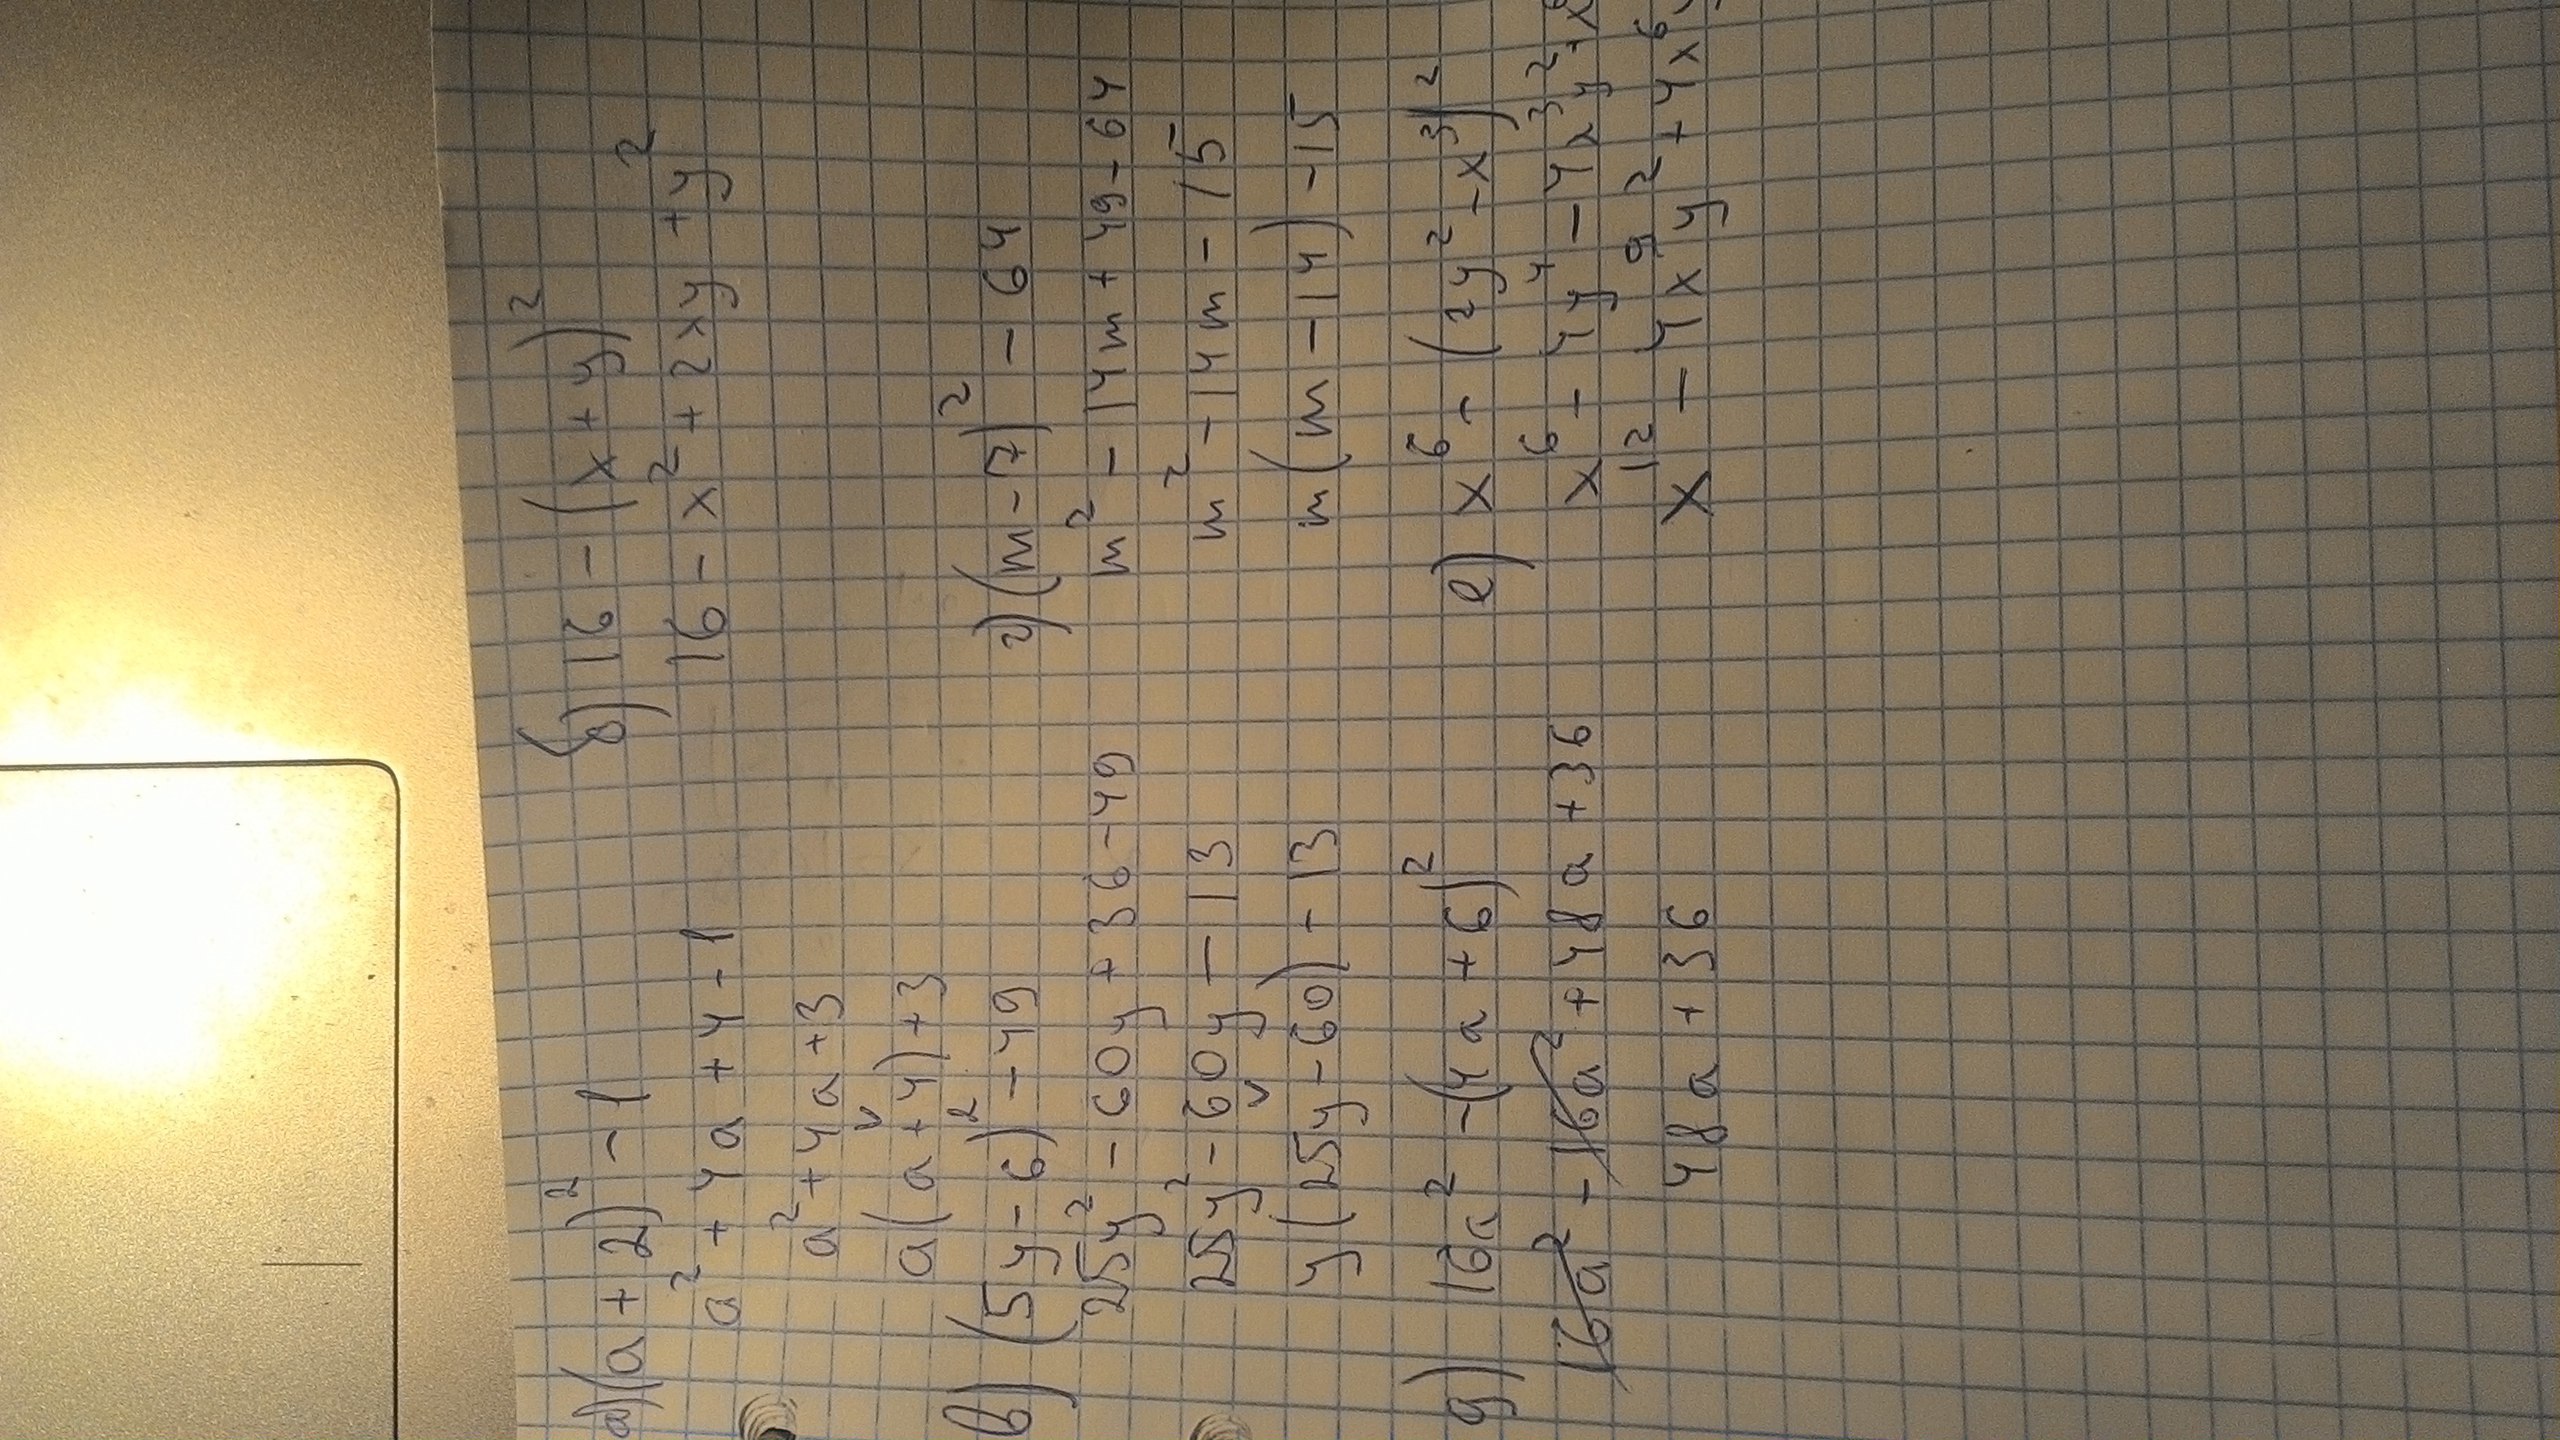 а) (a + 2)² - 1
a² + 4a + 4 - 1
a² + 4a + 3
a(a + 4) + 3
б) 16 - (x + y)²
16 - x² + 2xy + y²
в) (5y - 6)² - 49
25y² - 60y + 36 - 49
25y² - 60y - 13
y(25y - 60) - 13
г) (m - 7)² - 64
m² - 14m + 49 - 64
m² - 14m - 15
m(m - 14) - 15
д) 16a² - (4a + 6)²
16a² - 16a² + 48a + 36
48a + 36
е) x⁶ - (2y² - x³)²
x⁶ - 4y⁴ - 4x³y² + x⁶
x¹² - 4x⁹y² + 4x⁶